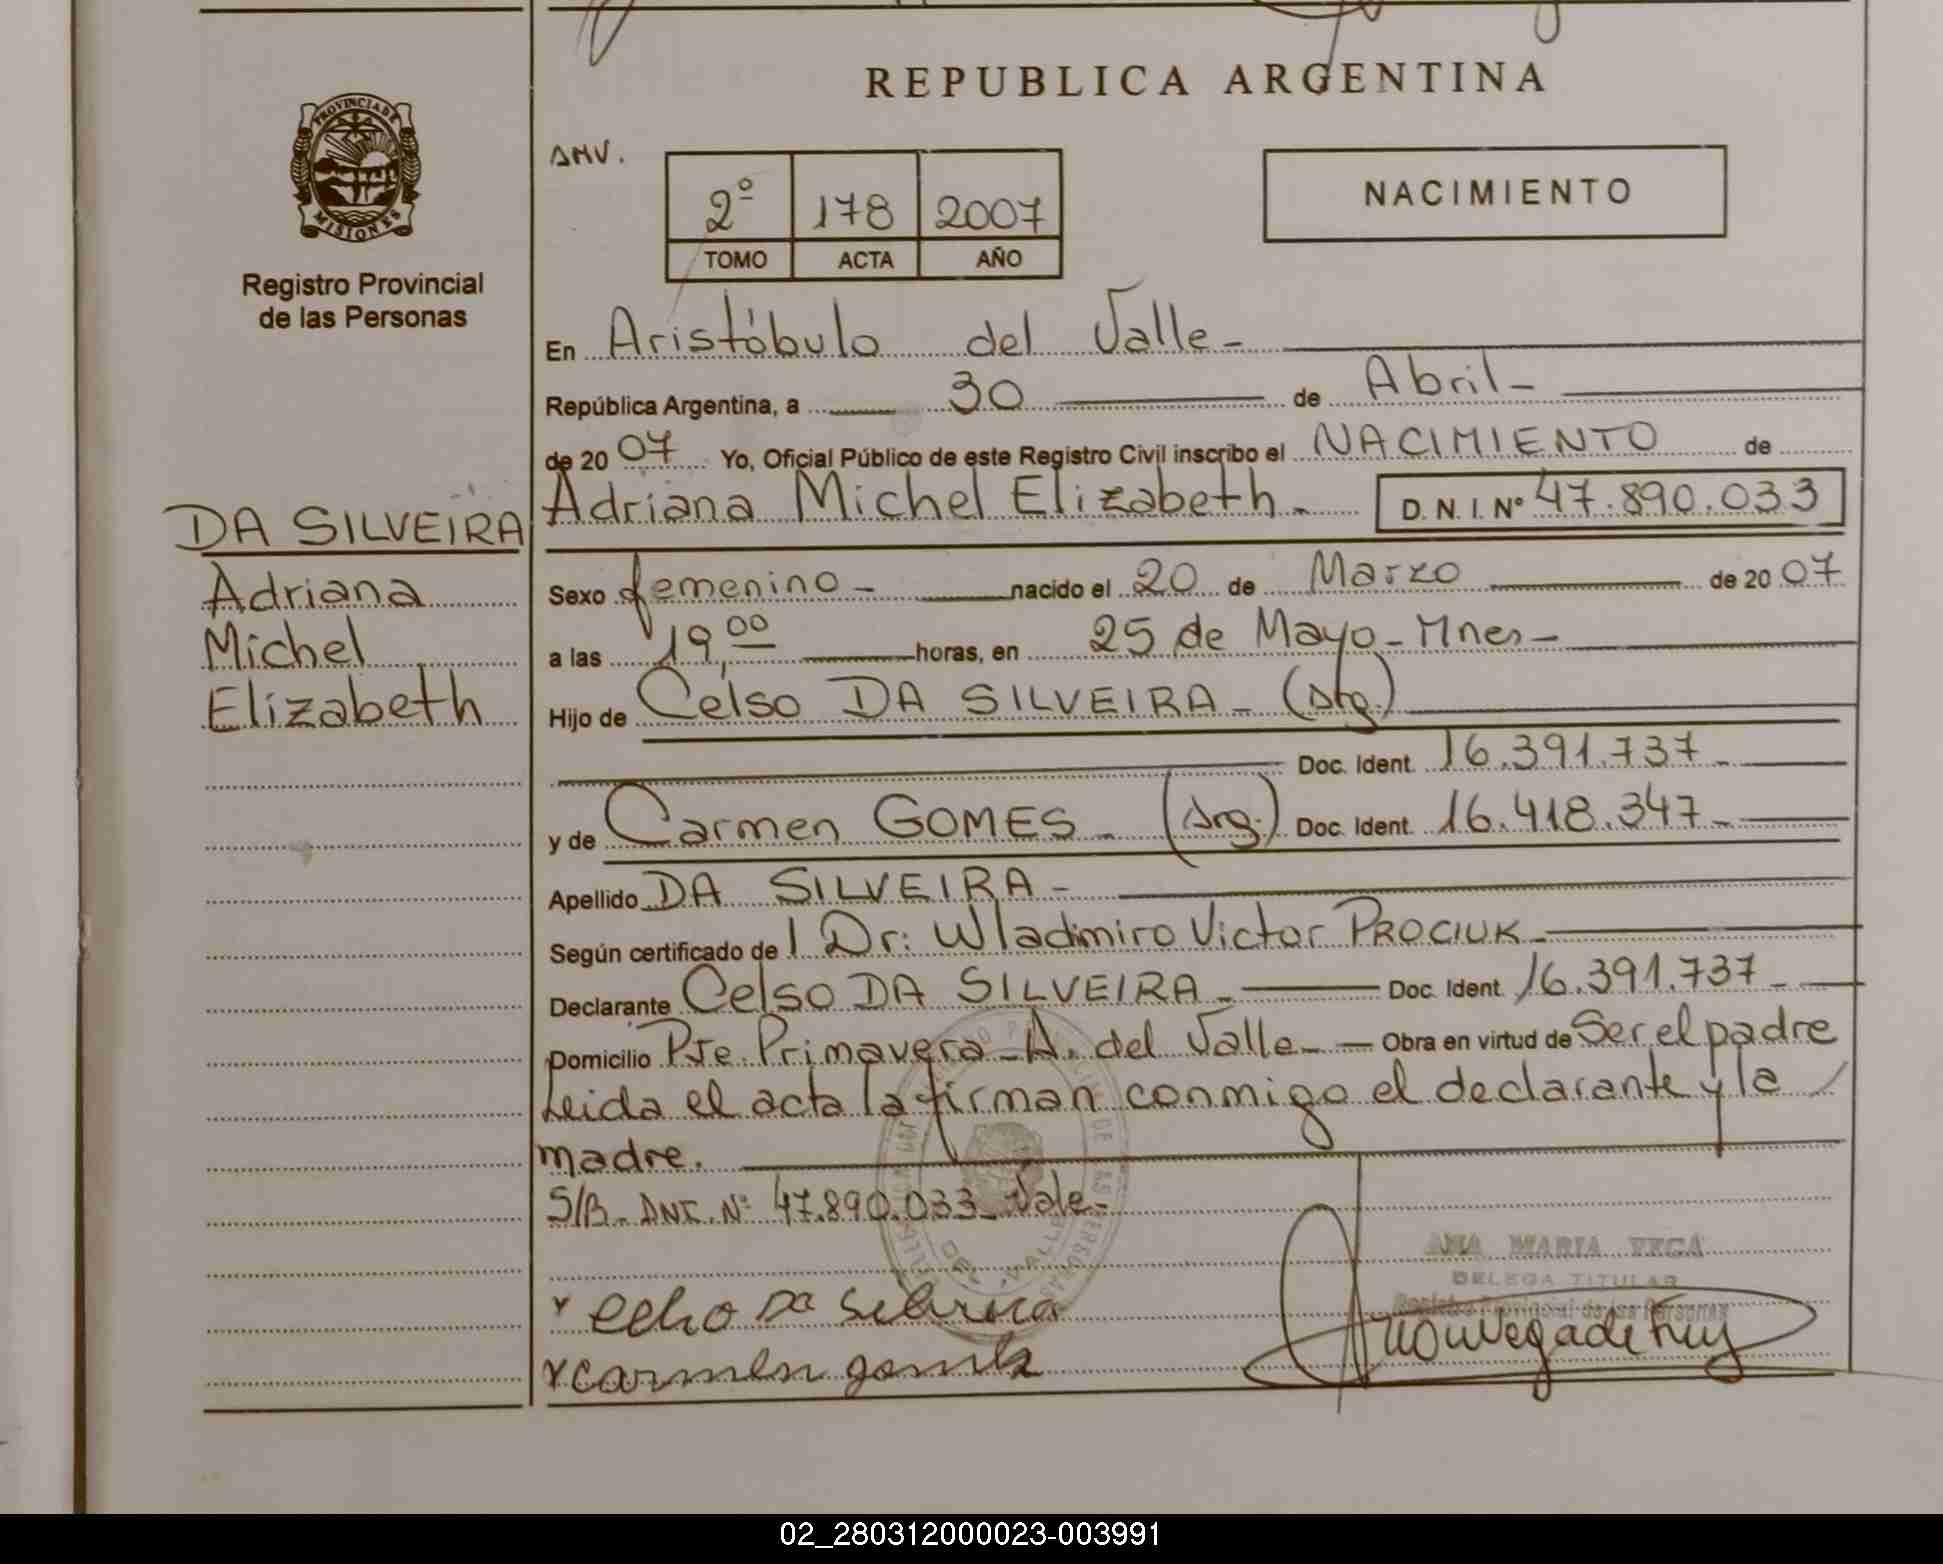 REPUBLICA ARGENTINA
PROVINCIA DE
MISIONES
Registro Provincial
de las Personas
AMV.
2º 178 2007
TOMO ACTA AÑO
NACIMIENTO
En Aristóbulo del Valle-
República Argentina, a 30 de Abril-
de 2007 Yo, Oficial Público de este Registro Civil inscribo el NACIMIENTO de
Adriana Michel Elizabeth. D. N. I. Nº 47.890.033
DA SILVEIRA
Adriana
Michel
Elizabeth
Sexo femenino- nacido el 20 de Marzo de 2007
a las 19,00 horas, en 25 de Mayo-Mnes-
Hijo de Celso DA SILVEIRA- (Arg.)
Doc. Ident. 16.391.737-
y de Carmen GOMES- (Arg.) Doc. Ident. 16.418.347-
Apellido DA SILVEIRA-
Según certificado de l Dr: Wladimiro Victor PROCIUK-
Declarante Celso DA SILVEIRA- Doc. Ident. 16.391.737-
Domicilio Pje. Primavera-A. del Valle- Obra en virtud de Ser el padre
Leida el acta la firman conmigo el declarante y la
madre.
S/B- DNI. Nº 47.890.033- Vale-
ANA MARIA VEGA
DELEGA TITULAR
Registro Provincial de las Personas
Da Silveira
carmen gomes
02_280312000023-003991